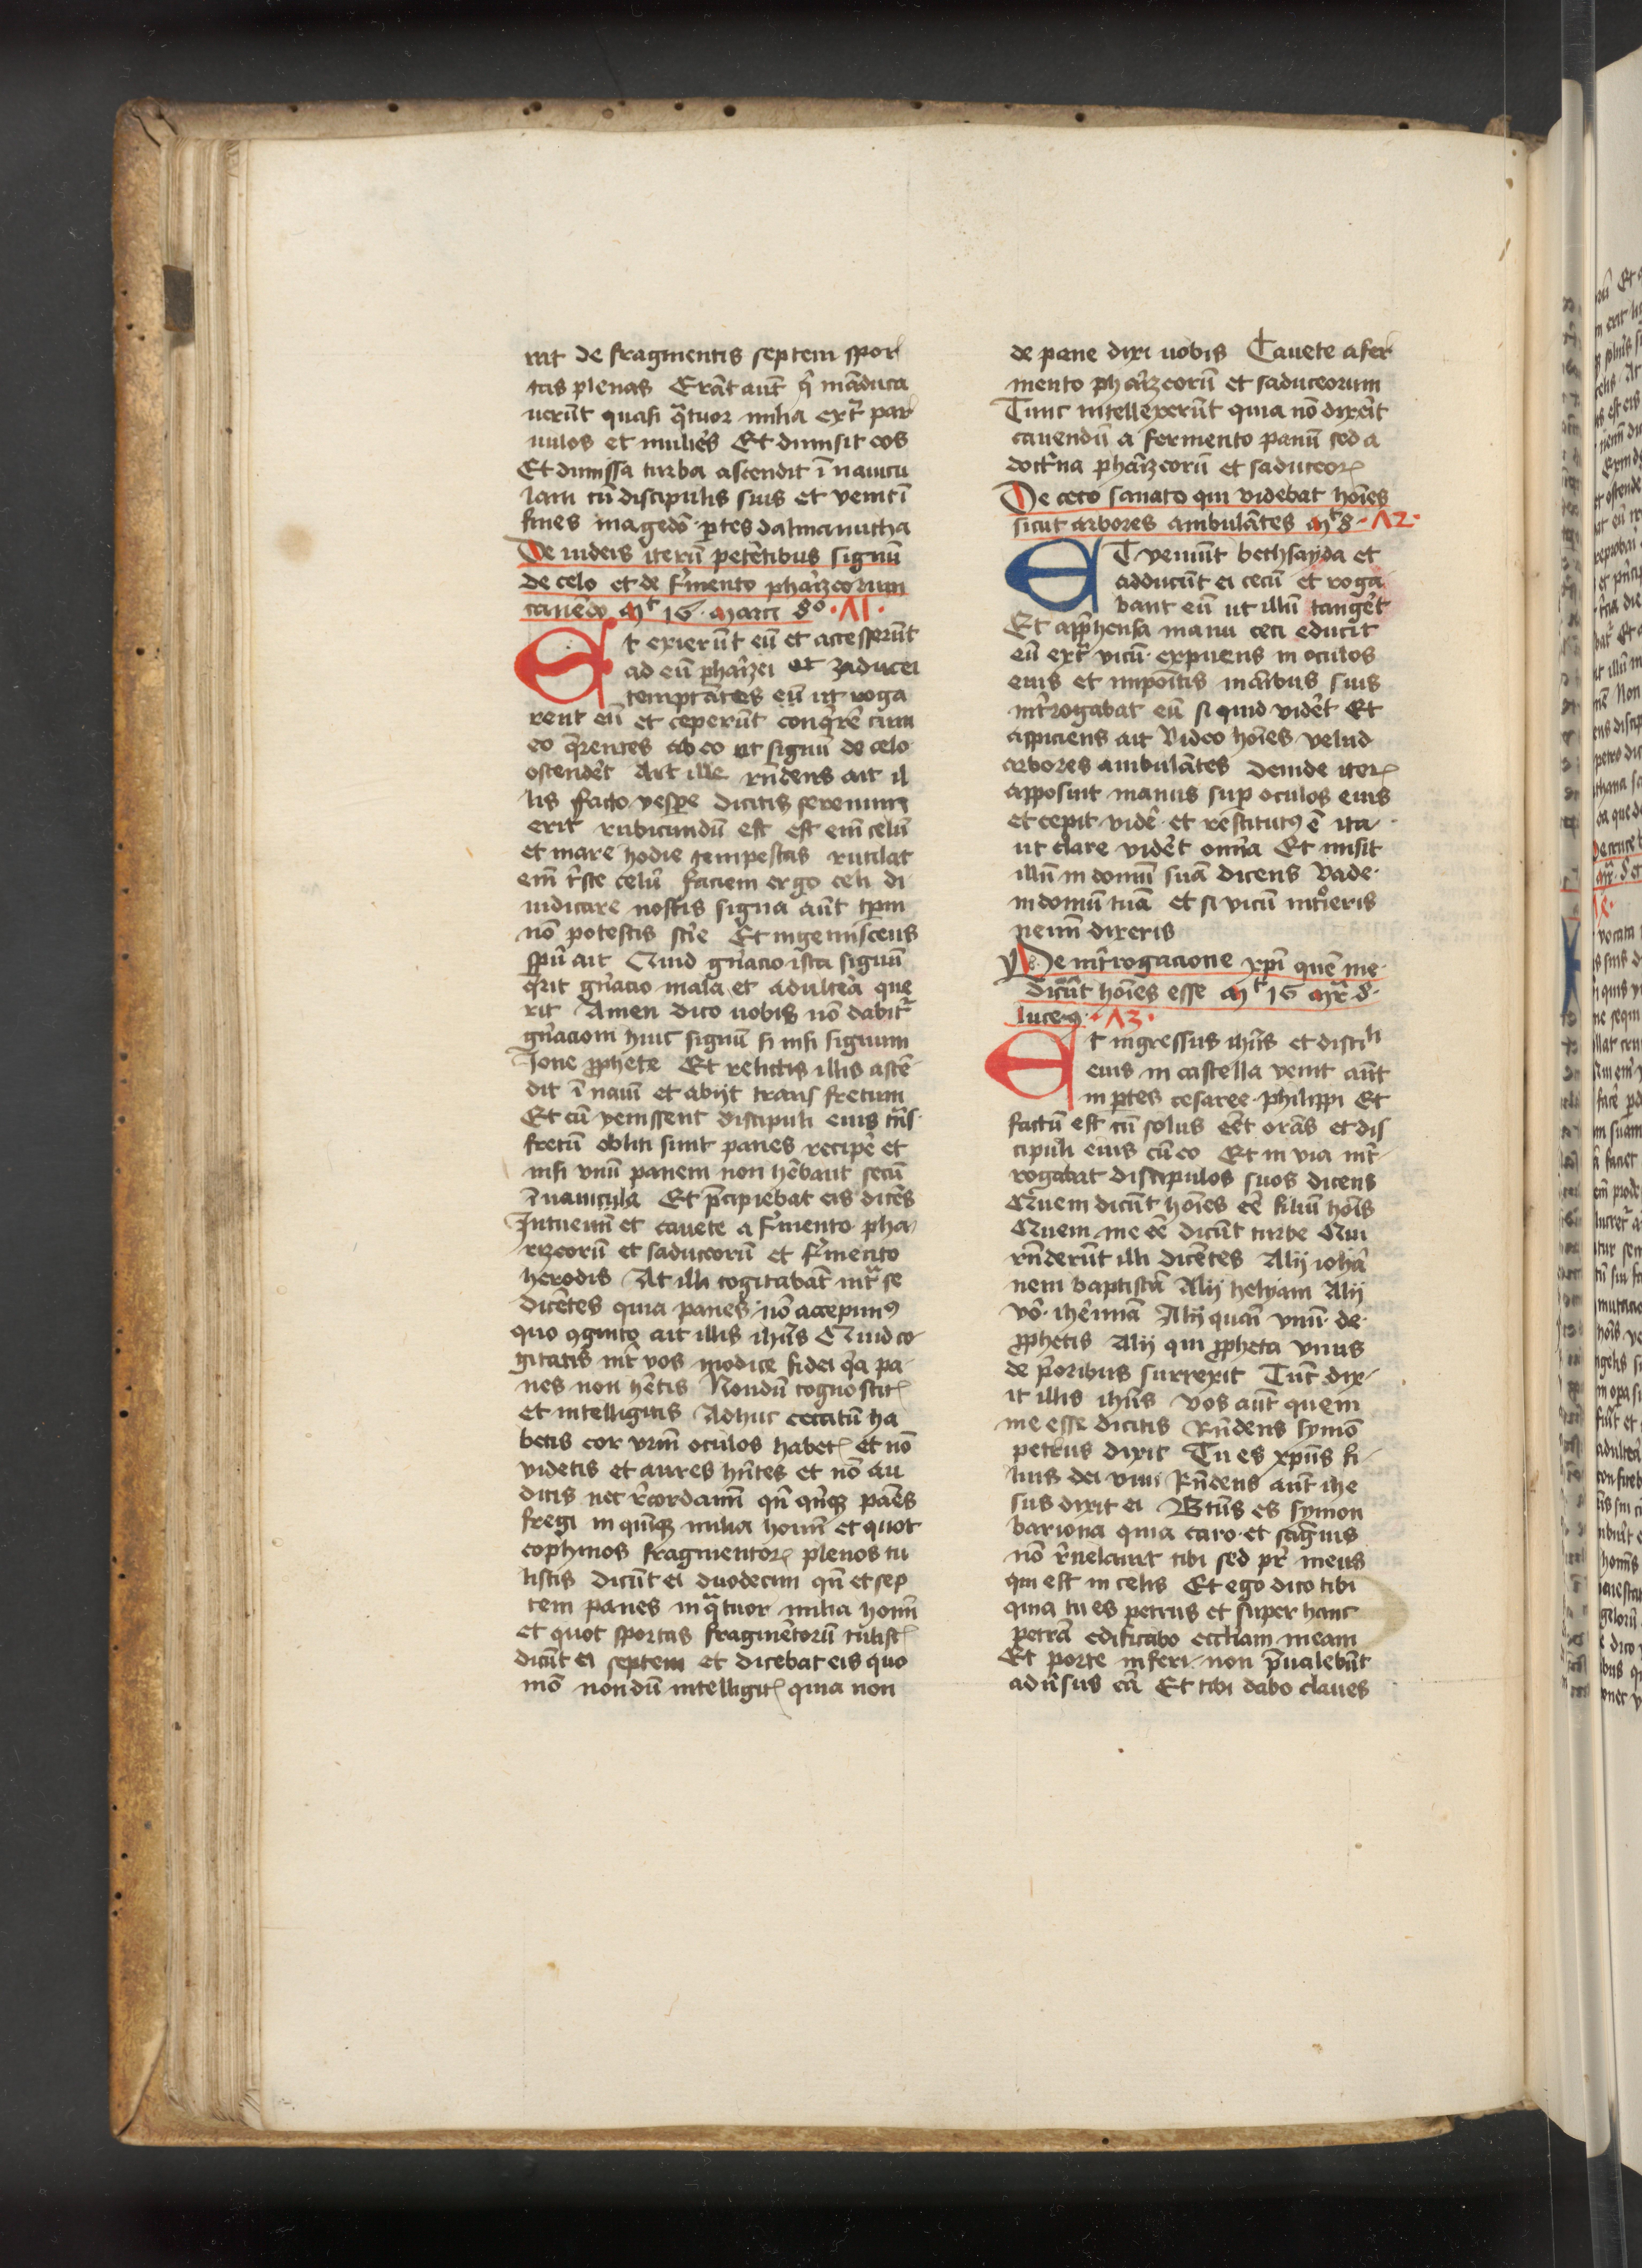 rat de fragmentis septem spor
tas plenas Erāt aut̄ q̄ māduca
uerūt quasi q̄tuor milia ext̄ par
uulos et mulieēs Et dimisit eos
Et dimissa turba ascendit ī nauicu
lam cū discipulis suis et venit ī
fines magedō ꝑtes dalmanutha
De iudeis iterū petētibus signū
de celo et de f̄mento pharizeorum
cauēdo Mt 16 Marci 8º · 71 ·
Et exierūt eū et accesserūt
ad eū pharizei et zaducei
temptātes eū ut roga
rent eū et ceperūt conq̄rē cum
eo q̄rentes ab eo ut signū de celo
ostendēt At ille rn̄dens ait il
lis facto vespe dicitis serenum
erit rubicundū est est em̄ celū
et mane hodie tempestas rutilat
em̄ tr̄ste celū faciem ergo celi di
iudicare nostis signa aūt tp̄m
nō potestis sc̄re Et ingemiscens
sp̄u ait Quid gn̄acio ista signū
q̄rit gn̄acio mala et adultera que
rit Amen dico uobis nō dabit̄
gn̄acioni huic signū si nisi signum
Jone ꝓphete Et relictis illis ascē
dit ī nauī et abijt trans fretum
Et cū venissent discipuli eius tn̄s
fretū obliti sunt panes recipē et
nisi vnū panem non hēbant secū
ī nauicula Et p̄cipiebat eis dicēs
Intuemī et cauete a f̄mento pha
rizeorū et saduceorū et f̄mento
herodis At illi cogitabāt int̄ se
dicētes quia panes nō accepimꝰ
quo ꝯgnito ait illis ih̄us Quid co
gitatis int̄ vos modice fidei q̄a pa
nes non hētis Nondū cognoscitꝭ
et intelligitis Adhuc cecatū ha
betis cor vr̄m oculos habetꝭ et nō
videtis et aures hn̄tes et nō au
ditis nec r̄cordamī qn̄ qn̄qꝫ panes
fregi in quīqꝫ milia homī et quot
cophinos fragmentorꝭ plenos tu
listis dicūt ei duodecim qn̄ et sep
tem panes in q̄tuor milia homī
et quot sportas fragmētorū tulistꝭ
dicūt ei septem et dicebat eis quo
mō nondū intelligitꝭ quia non
de pane dixi uobis Cauete a fer
mento pharizeorū et saduceorum
Tunc intellexerūt quia nō dixēit
cauendū a fermento panū sed a
doctr̄na pharizeorū et saduceorꝭ
De ceco sanato qui videbat hoīes
sicut arbores ambulātes Mt 8 · 72 ·
ET veniūt bethsayda et
adducūt ei cecū et roga
bant eū ut illū tangēt
Et app̄hensa manu ceci educit
eū ext̄ vicū expuens in oculos
eius et impoītis māibus suis
int̄rogabat eū si quid vidēt Et
aspiciens ait Video hoīes velud
arbores ambulātes deinde iterꝭ
apposuit manus sup oculos eius
et cepit vidē et restitutꝰ ē ita
ut clare vidēt omīa Et misit
illū in domū suā dicens Vade
in domū tuā et si vicū int̄ieris
nemī dixeris
De int̄rogacione xpī quē me
dicūt hoīes esse Mt 16 Mr̄ 8
luce 9 · 73 ·
Et ingressus ih̄us et disci
eius in castella venit aūt
in ꝑtes cesaree philippi Et
factū est cū solus eēt orās et dis
cipuli eius cū eo Et in via int̄
rogabat discipulos suos dicens
Quem dicūt hoīes eē filiū hoīs
Quem me eē dicūt turbe Qui
rn̄derūt illi dicētes Alij iohā
nem baptistā Alij helyam Alij
vō iherimiā Alij quasi vnū de
ꝓphetis Alij qui ꝓpheta vnus
de p̄oribus surrexit Tūc dix
it illis ih̄us Vos aūt quem
me esse dicitis Rn̄dens symō
petrus dixit Tu es xp̄us fi
lius dei viui Rn̄dens aūt ihe
sus dixit ei Btūs es symon
bariona quia caro et sagwis
nō r̄uelauit tibi sed pr̄ meus
qui est in celis Et ego dico tibi
quia tu es petrus et super hanc
petrā edificabo eccl̄iam meam
Et porte inferi non p̄ualebūt
adūsus eā Et tibi dabo claues